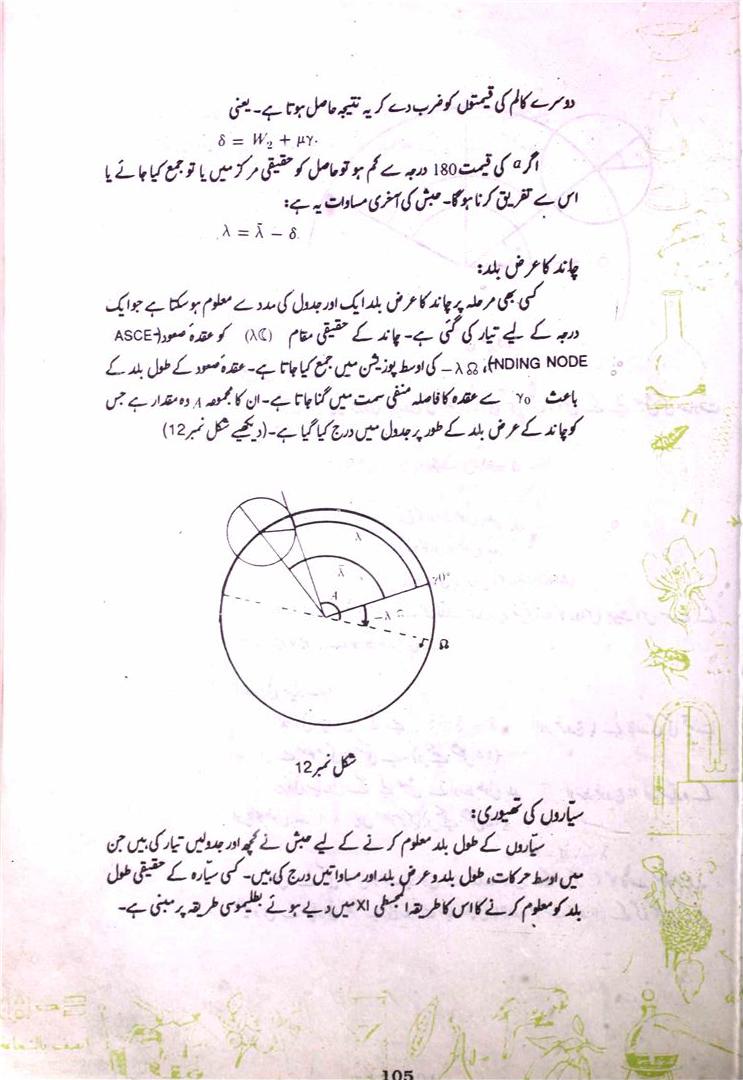 دوسرے کالم کی قیمتوں کو ضرب دے کر یہ نتیجہ حاصل ہوتا ہے۔ یعنی
δ = W₂ + μγ.
اگر α کی قیمت 180 درجہ سے کم ہو تو حاصل کو حقیقی مرکز میں یا تو جمع کیا جائے یا
اس سے تفریق کرنا ہوگا۔ حبش کی آخری مساوات یہ ہے:
λ = λ̄ − δ.
چاند کا عرض بلد:
کسی بھی مرحلہ پر چاند کا عرض بلد ایک اور جدول کی مدد سے معلوم ہو سکتا ہے جو ایک
درجہ کے لیے تیار کی گئی ہے۔ چاند کے حقیقی مقام (λ☾) کو عقدۂ صعود (ASCE-
NDING NODE)، −λ☊ کی اوسط پوزیشن میں جمع کیا جاتا ہے۔ عقدہ صعود کے طول بلد کے
باعث γ₀ سے عقدہ کا فاصلہ منفی سمت میں گنا جاتا ہے۔ ان کا مجموعہ A وہ مقدار ہے جس
کو چاند کے عرض بلد کے طور پر جدول میں درج کیا گیا ہے۔ (دیکھیے شکل نمبر 12)
λ
λ̄
γ0°
A
−λ☊
☊
شکل نمبر 12
سیّاروں کی تھیوری:
سیّاروں کے طول بلد معلوم کرنے کے لیے حبش نے کچھ اور جدولیں تیار کی ہیں جن
میں اوسط حرکات، طول بلد و عرض بلد اور مساواتیں درج کی ہیں۔ کسی سیّارہ کے حقیقی طول
بلد کو معلوم کرنے کا اس کا طریقہ المجسطی XI میں دیے ہوئے بطلیموسی طریقہ پر مبنی ہے۔
105